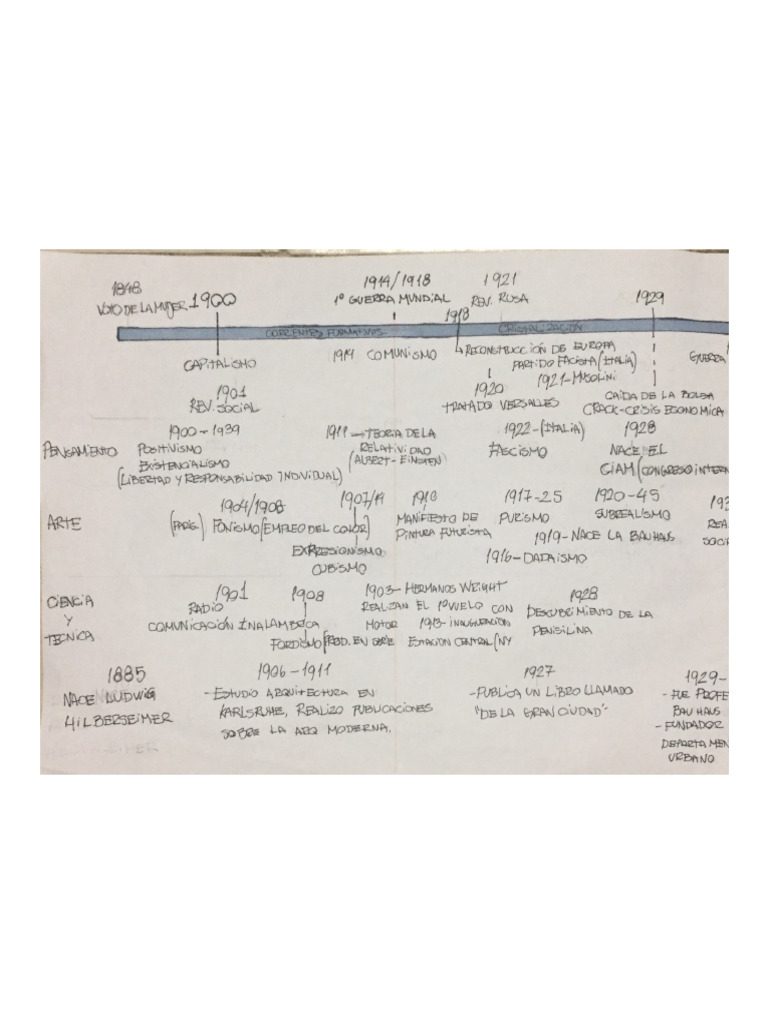 1848
VOTO DE LA MUJER
1900
1914/1918
1º GUERRA MUNDIAL
1921
REV. RUSA
1918
1929
CORRIENTES
CRISTALIZACIÓN
CAPITALISMO
1914 COMUNISMO
RECONSTRUCCIÓN DE EUROPA
PARTIDO FACISTA (ITALIA)
1921-MUSOLINI
GUERRA
1901
REV. SOCIAL
1920
TRATADO VERSALLES
CAIDA DE LA BOLSA
CRACK-CRISIS ECONOMICA
PENSAMIENTO
1900-1939
POSITIVISMO
EXISTENCIALISMO
(LIBERTAD Y RESPONSABILIDAD INDIVIDUAL)
1911-TEORIA DE LA
RELATIVIDAD
(ALBERT-EINSTEN)
1922-(ITALIA)
FASCISMO
1928
NACE EL
CIAM (CONGRESO INTERN
ARTE
1904/1908
(PARIS.) FONISMO (EMPLEO DEL COLOR)
1907/14
EXPRESIONISMO
CUBISMO
1910
MANIFIESTO DE
PINTURA FUTURISTA
1917-25
PURISMO
1920-45
SUBREALISMO
193
REA
SOCI
1919-NACE LA BAUHAUS
1916-DADAISMO
CIENCIA
Y
TECNICA
1901
RADIO
COMUNICACIÓN INALAMBRICA
1908
FORDISMO (PROD. EN SERIE
1903-HERMANOS WEIGHT
REALIZAN EL 1º VUELO CON
MOTOR 1913-INAUGURACION
ESTACION CENTRAL/NY
1928
DESCUBRIMIENTO DE LA
PENISILINA
1885
NACE LUDWIG
HILBERSEIMER
1906-1911
-ESTUDIO ARQUITECTURA EN
KARLSRUHE, REALIZO PUBLICACIONES
SOBRE LA ARQ MODERNA.
1927
-PUBLICA UN LIBRO LLAMADO
"DE LA GRAN CIUDAD"
1929-
-FUE PROFE
BAUHAUS
-FUNDADOR
DEPARTAMEN
URBANO